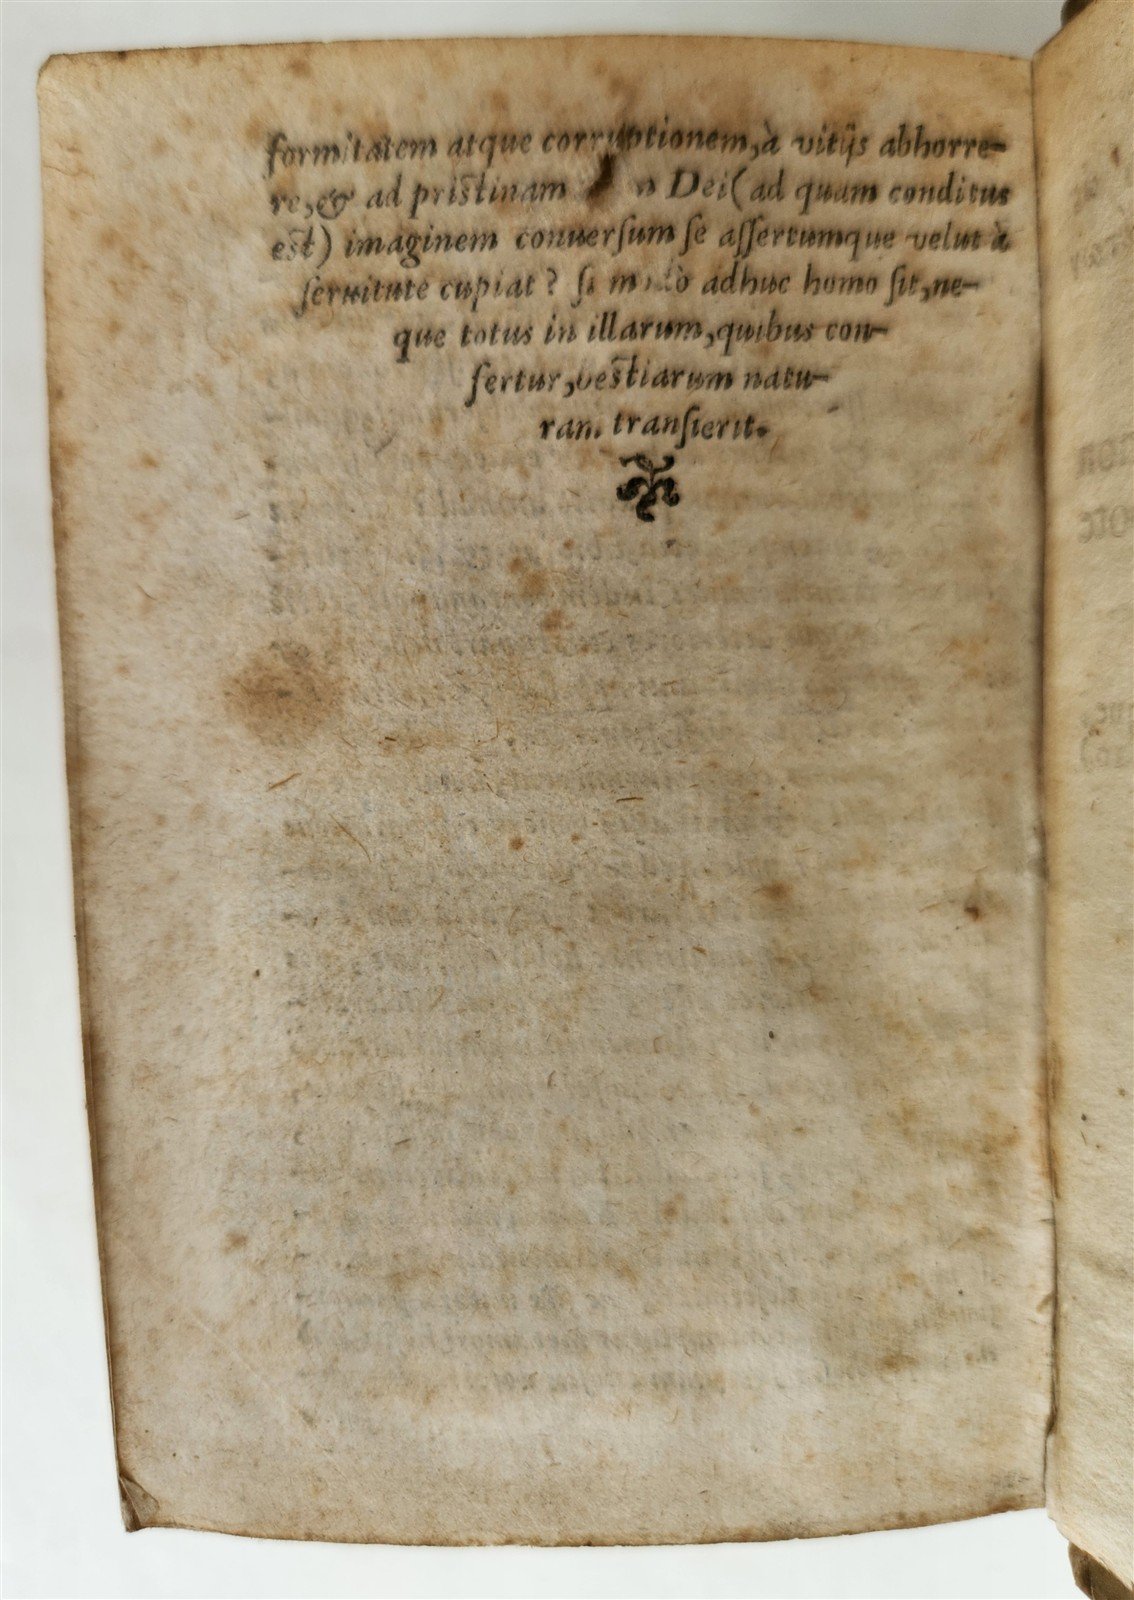 formitatem atque corruptionem, à vitijs abhorre-
re, & ad pristinam Dei (ad quam conditus
est) imaginem conuersum se assertumque velut à
seruitute cupiat? si modò adhuc homo sit, ne-
que totus in illarum, quibus con-
fertur, bestiarum natu-
ram transierit.